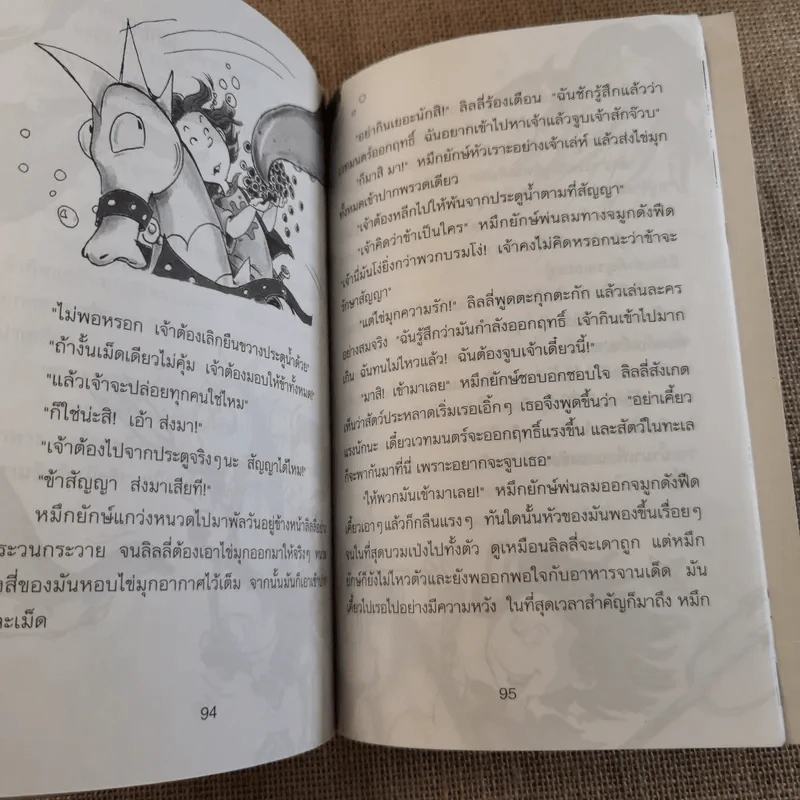 "ไม่พอหรอก เจ้าต้องเลิกยืนขวางประตูน้ำด้วย"
"ถ้างั้นเม็ดเดียวไม่คุ้ม เจ้าต้องมอบให้ข้าทั้งหมด"
"แล้วเจ้าจะปล่อยทุกคนใช่ไหม"
"ก็ใช่น่ะสิ! เอ้า ส่งมา!"
"เจ้าต้องไปจากประตูจริงๆนะ สัญญาได้ไหม!"
"ข้าสัญญา ส่งมาเสียที!"
หมึกยักษ์แกว่งหนวดไปมาพัลวันอยู่ข้างหน้าลิลลี่
ระวนกระวาย จนลิลลี่ต้องเอาไข่มุกออกมาให้จริงๆ
สี่ของมันหอบไข่มุกอากาศไว้เต็ม จากนั้นมันก็เอาเข้า
ละเม็ด
94
"อย่ากินเยอะนักสิ!" ลิลลี่ร้องเตือน "ฉันชักรู้สึกแล้วว่า
เวทมนตร์ออกฤทธิ์ ฉันอยากเข้าไปหาเจ้าแล้วจูบเจ้าสักจ๊วบ"
"ก็มาสิ มา!" หมึกยักษ์หัวเราะอย่างเจ้าเล่ห์ แล้วส่งไข่มุก
ทั้งหมดเข้าปากพรวดเดียว
"เจ้าต้องหลีกไปให้พ้นจากประตูน้ำตามที่สัญญา"
"เจ้าคิดว่าข้าเป็นใคร" หมึกยักษ์พ่นลมทางจมูกดังฟืด
"เจ้านี่มันโง่ยิ่งกว่าพวกบรมโง่! เจ้าคงไม่คิดหรอกนะว่าข้าจะ
รักษาสัญญา"
"แต่ไข่มุกความรัก!" ลิลลี่พูดตะกุกตะกัก แล้วเล่นละคร
อย่างสมจริง "ฉันรู้สึกว่ามันกำลังออกฤทธิ์ เจ้ากินเข้าไปมาก
เกิน ฉันทนไม่ไหวแล้ว! ฉันต้องจูบเจ้าเดี๋ยวนี้!"
"มาสิ! เข้ามาเลย" หมึกยักษ์ชอบอกชอบใจ ลิลลี่สังเกต
เห็นว่าสัตว์ประหลาดเริ่มเรอเอิ้กๆ เธอจึงพูดขึ้นว่า "อย่าเคี้ยว
แรงนักนะ เดี๋ยวเวทมนตร์จะออกฤทธิ์แรงขึ้น และสัตว์ในทะเล
ก็จะพากันมาที่นี่ เพราะอยากจะจูบเธอ"
"ให้พวกมันเข้ามาเลย!" หมึกยักษ์พ่นลมออกจมูกดังฟืด
เคี้ยวเอาๆ แล้วก็กลืนแรงๆ ทันใดนั้นหัวของมันพองขึ้นเรื่อยๆ
จนในที่สุดบวมเป่งไปทั้งตัว ดูเหมือนลิลลี่จะเดาถูก แต่หมึก
ยักษ์ก็ยังไม่ไหวตัวและยังพออกพอใจกับอาหารจานเด็ด มัน
เคี้ยวไปเรอไปอย่างมีความหวัง ในที่สุดเวลาสำคัญก็มาถึง หมึก
95